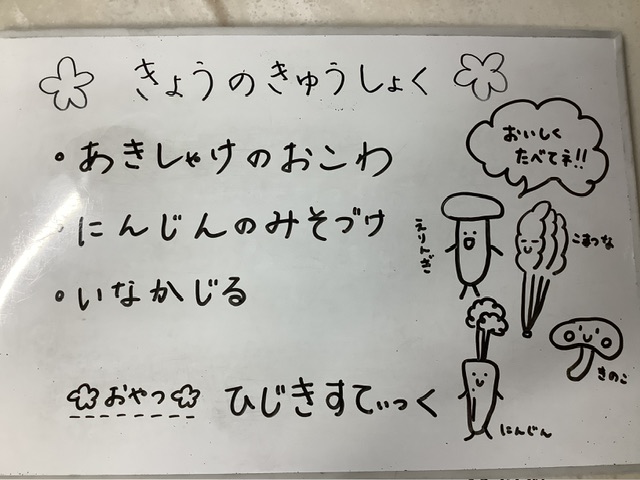 きょうのきゅうしょく
・あきしゃけのおこわ
・にんじんのみそづけ
・いなかじる
おやつ ひじきすてぃっく
おいしく
たべてネ!!
えりんぎ
こまつな
きのこ
にんじん